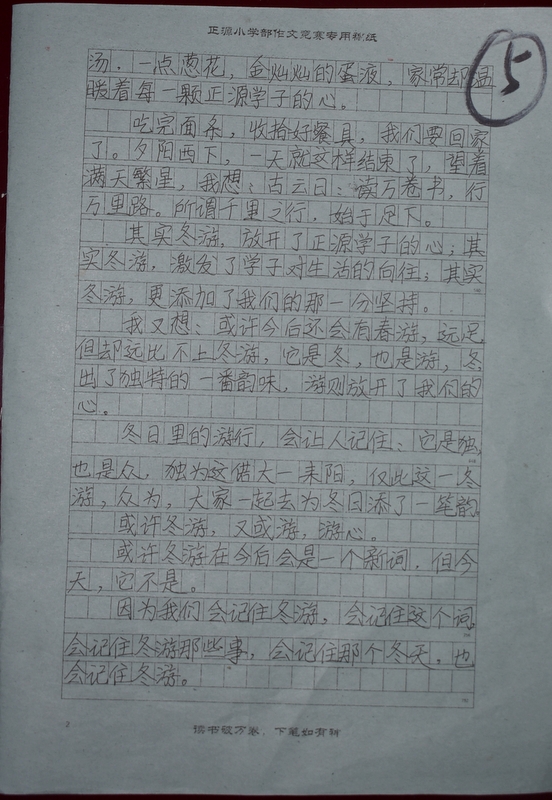 正源小学部作文竞赛专用稿纸
5
汤.一点葱花，金灿灿的蛋液，家常却温
暖着每一颗正源学子的心。
吃完面条，收拾好餐具，我们要回家
了。夕阳西下，一天就这样结束了，望着
满天繁星，我想：古云曰：读万卷书，行
万里路。所谓千里之行，始于足下。
其实冬游，放开了正源学子的心；其
实冬游，激发了学子对生活的向往；其实
冬游，更添加了我们的那一分坚持。
我又想：或许今后还会有春游，远足，
但却远比不上冬游，它是冬，也是游，冬
出了独特的一番韵味，游则放开了我们的
心。
冬日里的游行，会让人记住：它是独，
也是众，独为这偌大一耒阳，仅此这一冬
游，众为，大家一起去为冬日添了一笔韵
或许冬游，又或游，游心。
或许冬游在今后会是一个新词，但今
天，它不是。
因为我们会记住冬游，会记住这个词，
会记住冬游那些事，会记住那个冬天，也
会记住冬游。
2
读书破万卷，下笔如有神